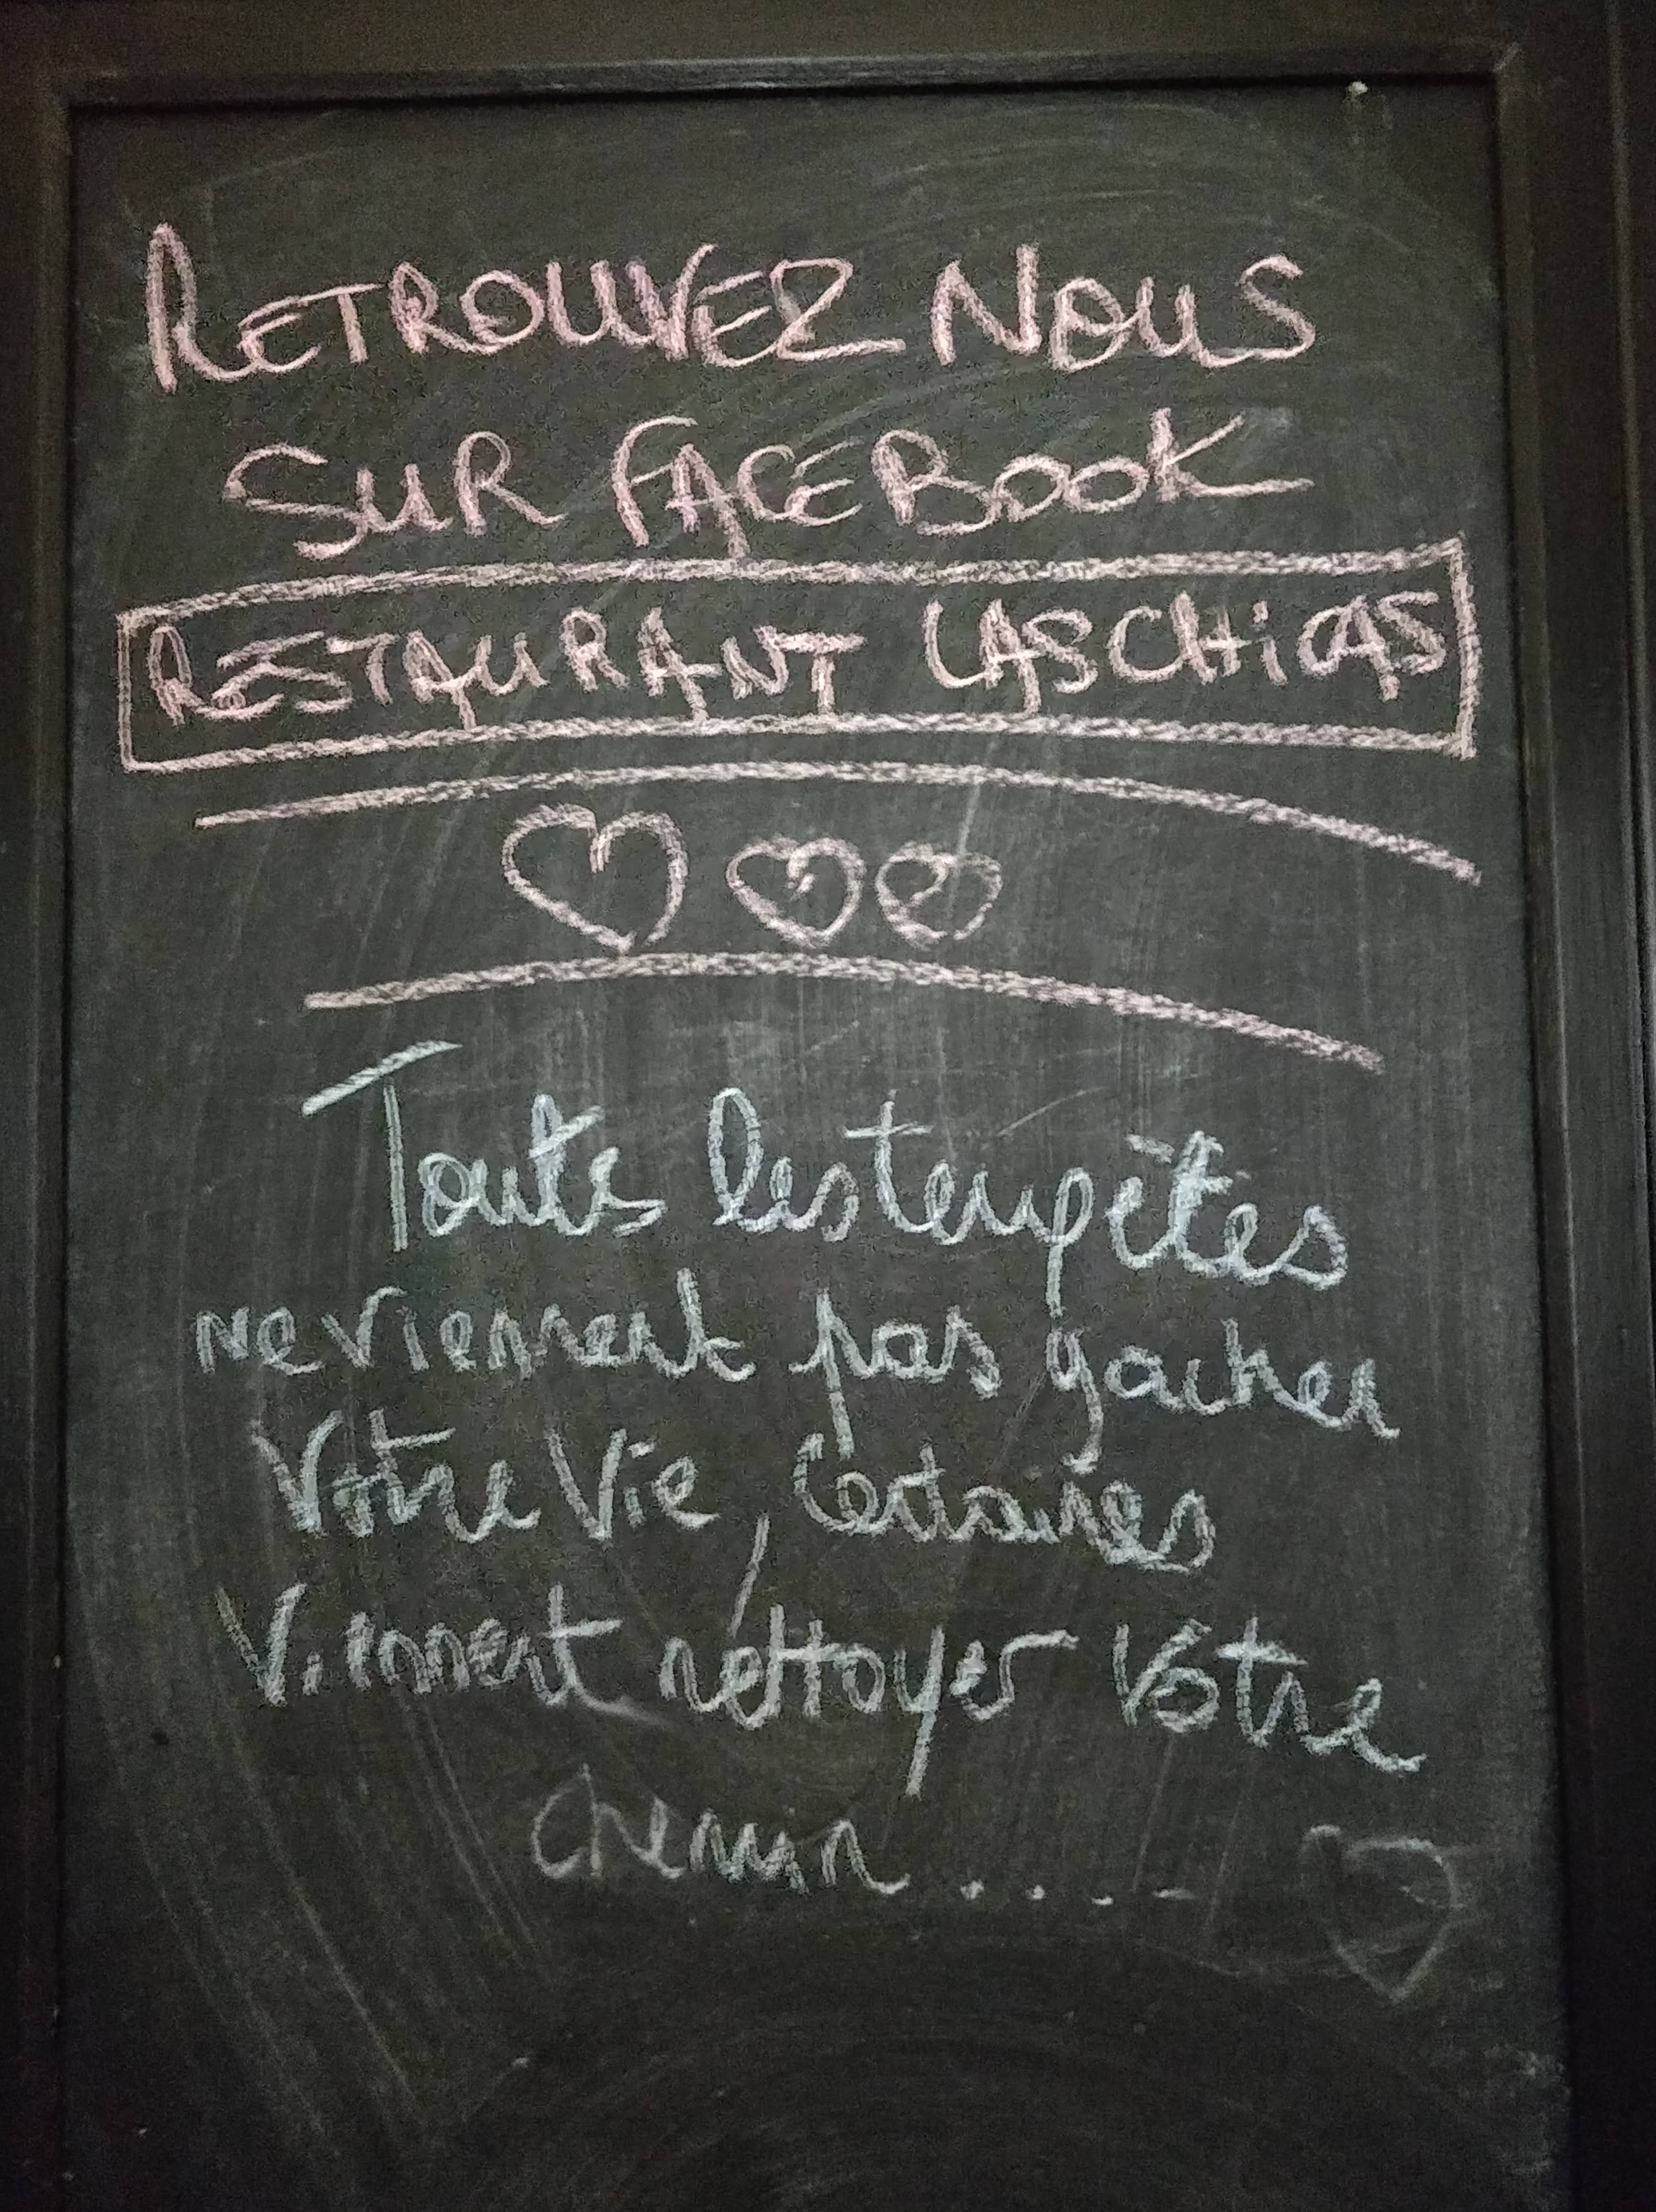 RETROUVEZ NOUS
SUR FACEBOOK
RESTAURANT LAS CHICAS
Toutes les tempêtes
ne viennent pas gacher
Votre Vie, Certaines
Viennent nettoyer Votre
chemin .....